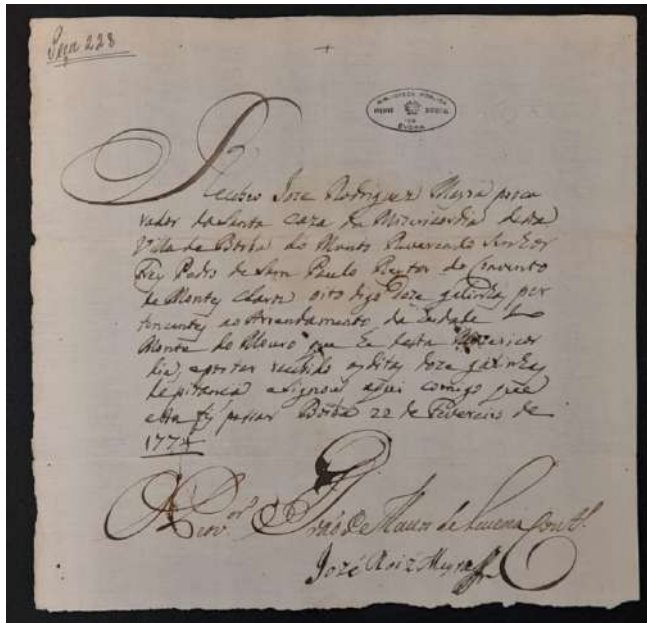 Peça 228
BIBLIOTHECA PUBLICA
EVORA
Recebeo Joze Rodriguez Meyra procu
rador da Santa Caza da Mizericordia desta
Villa de Borba do Munto Reverendo Senhor
Frey Pedro de Sam Paulo Reytor do Convento
de Montes Claros oito digo doze galinhas per
tencentes ao Arrendamento da Erdade do
Monte do Mouro que he desta Mizericor
dia, e por ter recebido as ditas doze galinhas
de pitança asignou aqui comigo que
esta fiz passar Borba 22 de Fevereiro de
1774
O Prov.or
de Lucena
José Roiz Meyra